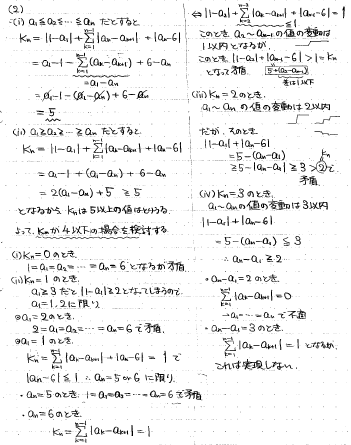 (2)
(i) a₁≦a₂≦…≦aₙ だとすると
Kₙ = |1-a₁| + Σ_{k=1}^{n-1}|aₖ-aₖ₊₁| + |aₙ-6|
= a₁-1 - Σ_{k=1}^{n-1}(aₖ-aₖ₊₁) + 6-aₙ
= a₁-aₙ
= a₁-1-(a₁-aₙ)+6-aₙ
= 5
(ii) a₁≧a₂≧…≧aₙ だとすると
Kₙ = |1-a₁| + Σ_{k=1}^{n-1}|aₖ-aₖ₊₁| + |aₙ-6|
= a₁-1 + (a₁-aₙ) + 6-aₙ
= 2(a₁-aₙ)+5 ≧5
となるから Kₙは5以上の値はとりうる
よって、Kₙが4以下の場合を検討する
(i) Kₙ=0のとき
1=a₁=a₂=…=aₙ=6となるが矛盾
(ii) Kₙ=1のとき
a₁≧3だと|1-a₁|≧2となってしまうので
a₁=1,2に限り
a₁=2のとき
2=a₁=a₂=…=aₙ=6で矛盾
a₁=1のとき
Kₙ = Σ_{k=1}^{n-1}|aₖ-aₖ₊₁| + |aₙ-6| = 1で
|aₙ-6|≦1 ∴aₙ=5 or 6に限り
・aₙ=5のとき 1=a₁=a₂=…=aₙ=6で矛盾
・aₙ=6のとき
Kₙ = Σ_{k=1}^{n-1}|aₖ-aₖ₊₁| = 1
⇔ |1-a₁| + Σ_{k=1}^{n-1}|aₖ-aₖ₊₁| + |aₙ-6| = 1
≦1
このとき a₁~aₙの値の変動は
1以内となるが
このとき |1-a₁|+|aₙ-6| > 1=Kₙ
となって矛盾 5+(a₁-aₙ)
差は1以下
(iii) Kₙ=2のとき
a₁~aₙの値の変動は2以内
だが、そのとき
|1-a₁|+|aₙ-6|
= 5-(aₙ-a₁) Kₙ
≧5-|aₙ-a₁| ≧3>2で
矛盾
(iv) Kₙ=3のとき
a₁~aₙの値の変動は3以内
|1-a₁|+|aₙ-6|
= 5-(aₙ-a₁) ≦3
∴ aₙ-a₁≧2
・aₙ-a₁=2のとき
Σ_{k=1}^{n-1}|aₖ-aₖ₊₁|=0
→a₁=…=aₙで不適
・aₙ-a₁=3のとき
Σ_{k=1}^{n-1}|aₖ-aₖ₊₁|=1となるが
これは実現しない